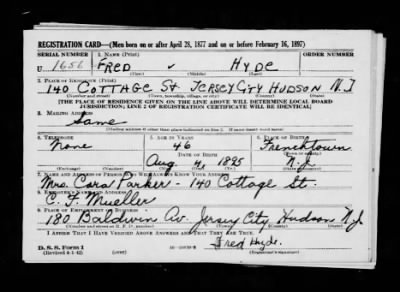 REGISTRATION CARD—(Men born on or after April 28, 1877 and on or before February 16, 1897)
SERIAL NUMBER 1. NAME (Print) ORDER NUMBER
U 1656 FRED HYDE
(First) (Middle) (Last)
2. PLACE OF RESIDENCE (Print)
140 COTTAGE St JERSEY CITY HUDSON N.J
(Number and street) (Town, township, village, or city) (County) (State)
[THE PLACE OF RESIDENCE GIVEN ON THE LINE ABOVE WILL DETERMINE LOCAL BOARD
JURISDICTION; LINE 2 OF REGISTRATION CERTIFICATE WILL BE IDENTICAL]
3. MAILING ADDRESS
Same
(Mailing address if other than place indicated on line 2. If same insert word same)
4. TELEPHONE 5. AGE IN YEARS 6. PLACE OF BIRTH
None 46 Frenchtown
DATE OF BIRTH (Town or county)
Aug 4 1895 N.J.
(Exchange) (Number) (Mo.) (Day) (Yr.) (State or country)
7. NAME AND ADDRESS OF PERSON WHO WILL ALWAYS KNOW YOUR ADDRESS
Mrs. Cora Parker - 140 Cottage St.
8. EMPLOYER'S NAME AND ADDRESS
C. F. Mueller
9. PLACE OF EMPLOYMENT OR BUSINESS
180 Baldwin Av. Jersey City, Hudson N.J.
(Number and street or R. F. D. number) (Town) (County) (State)
I AFFIRM THAT I HAVE VERIFIED ABOVE ANSWERS AND THAT THEY ARE TRUE.
D. S. S. Form 1 Fred Hyde.
(Revised 4-1-42) (over)